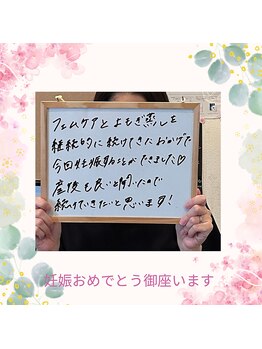 フェムケアとよもぎ蒸しを
継続的に続けてきたおかげで
今回妊娠することができました♡
産後も良いと聞いたので
続けていきたいと思います!
妊娠おめでとう御座います